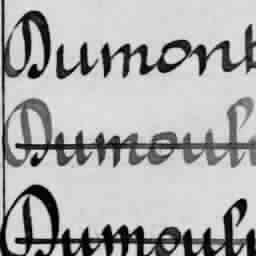 Dumont
Dumouli
Dumouli